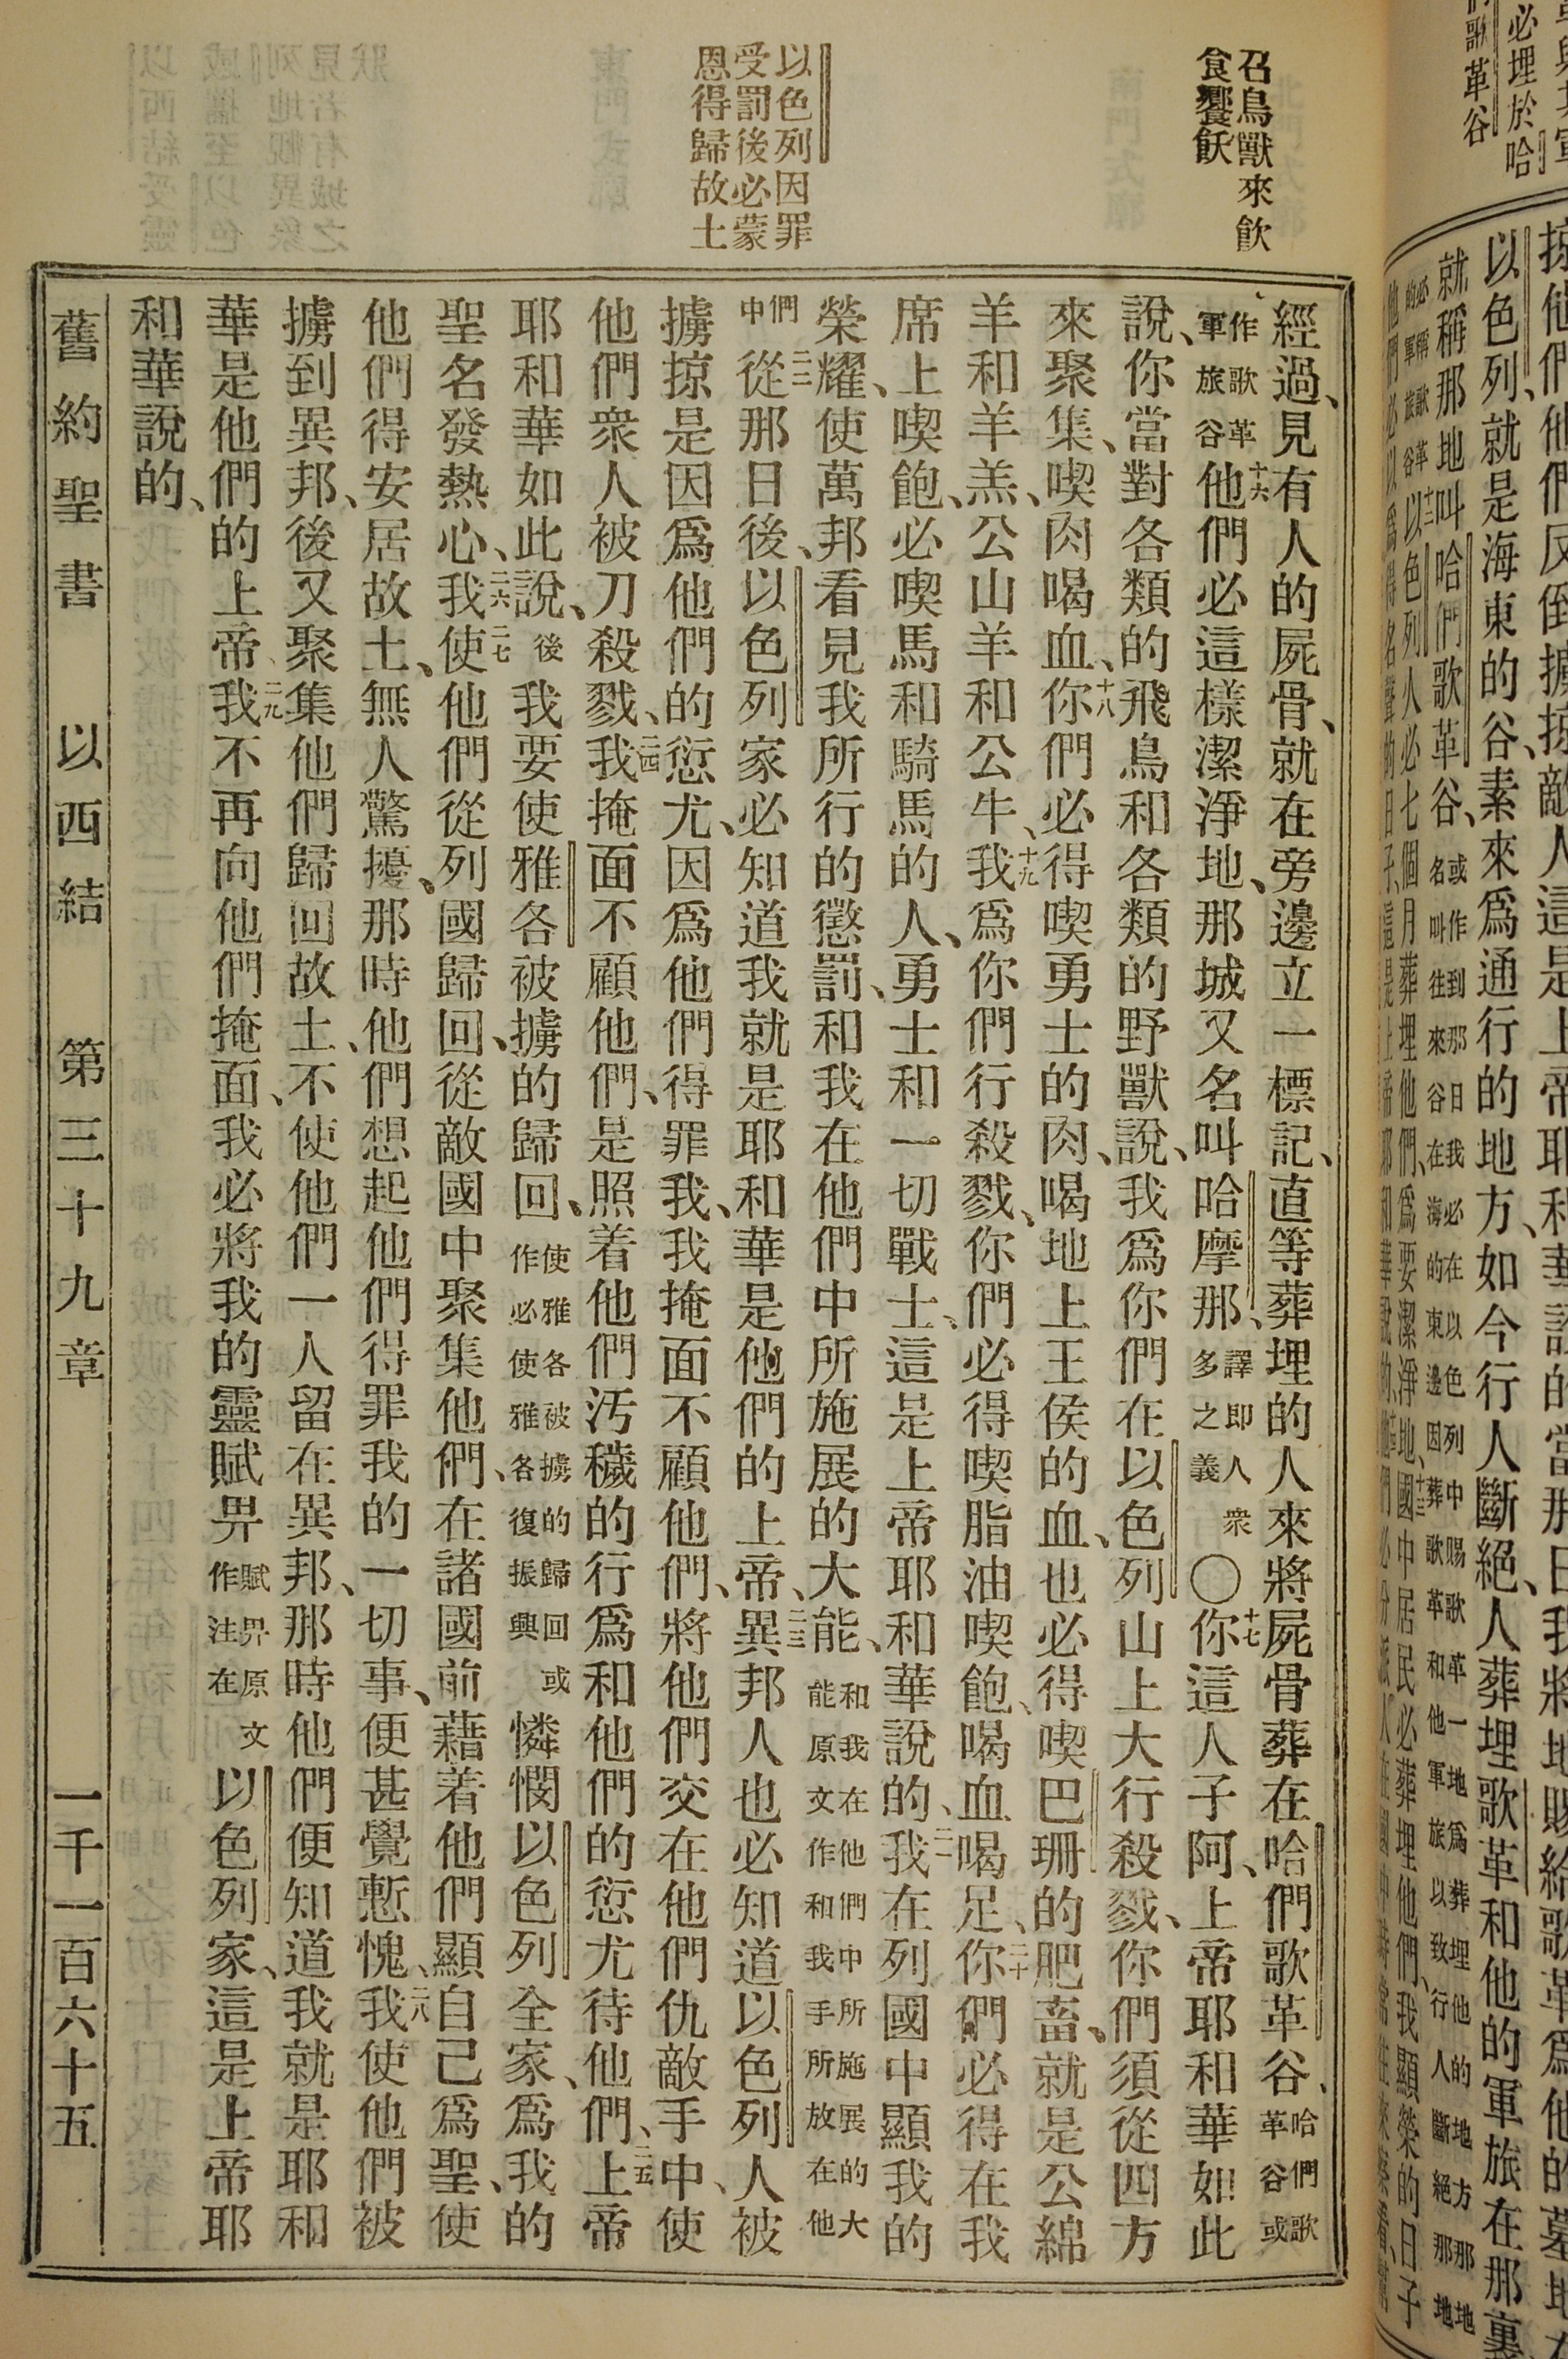 必埋於哈
們歌革谷
掠他們他們反倒擄掠敵人這是上帝耶和華說的當那日我將地賜給歌革爲他的墓地在
以色列、就是海東的谷、素來爲通行的地方、如今行人斷絕、人葬埋歌革和他的軍旅在那裏
就稱那地叫哈們歌革谷、或作到那日我必在以色列中賜歌革一地爲葬埋他的地方那地名叫往來谷在海的東邊因葬歌革和他軍旅以致行人斷絕那地
必稱歌革的軍旅谷十二以色列人必七個月葬埋他們、爲要潔淨地、十三國中居民必葬埋他們、我顯榮的日子
他們必以爲得名聲的日子、這是上帝耶和華說的、
召鳥獸來飲
食饗飫
以色列因罪
受罰後必蒙
恩得歸故土
經過、見有人的屍骨、就在旁邊立一標記、直等葬埋的人來將屍骨葬在哈們歌革谷、哈們歌革谷或
作歌革軍旅谷十六他們必這樣潔淨地、那城又名叫哈摩那、譯即人衆多之義〇十七你這人子阿、上帝耶和華如此
說、你當對各類的飛鳥和各類的野獸說、我爲你們在以色列山上大行殺戮、你們須從四方
來聚集、喫肉喝血、十八你們必得喫勇士的肉、喝地上王侯的血、也必得喫巴珊的肥畜、就是公綿
羊和羊羔、公山羊和公牛、十九我爲你們行殺戮、你們必得喫脂油喫飽、喝血喝足、二十你們必得在我
席上喫飽、必喫馬和騎馬的人、勇士和一切戰士、這是上帝耶和華說的、二一我在列國中顯我的
榮耀、使萬邦看見我所行的懲罰、和我在他們中所施展的大能、和我在他們中所施展的大能原文作和我手所放在他
們中二二從那日後、以色列家必知道我就是耶和華是他們的上帝、二三異邦人也必知道以色列人被
擄掠是因爲他們的愆尤、因爲他們得罪我、我掩面不顧他們、將他們交在他們仇敵手中、使
他們衆人被刀殺戮、二四我掩面不顧他們、是照着他們汚穢的行爲和他們的愆尤待他們、二五上帝
耶和華如此說、後我要使雅各被擄的歸回、使雅各被擄的歸回或作必使雅各復振興憐憫以色列全家、爲我的
聖名發熱心、二六我二七使他們從列國歸回、從敵國中聚集他們、在諸國前藉着他們顯自己爲聖、使
他們得安居故土、無人驚擾、那時他們想起他們得罪我的一切事、便甚覺慙愧、二八我使他們被
擄到異邦、後又聚集他們歸回故土、不使他們一人留在異邦、那時他們便知道我就是耶和
華是他們的上帝、二九我不再向他們掩面、我必將我的靈賦畀賦畀原文作注在以色列家、這是上帝耶
和華說的、
舊約聖書 以西結 第三十九章 一千一百六十五